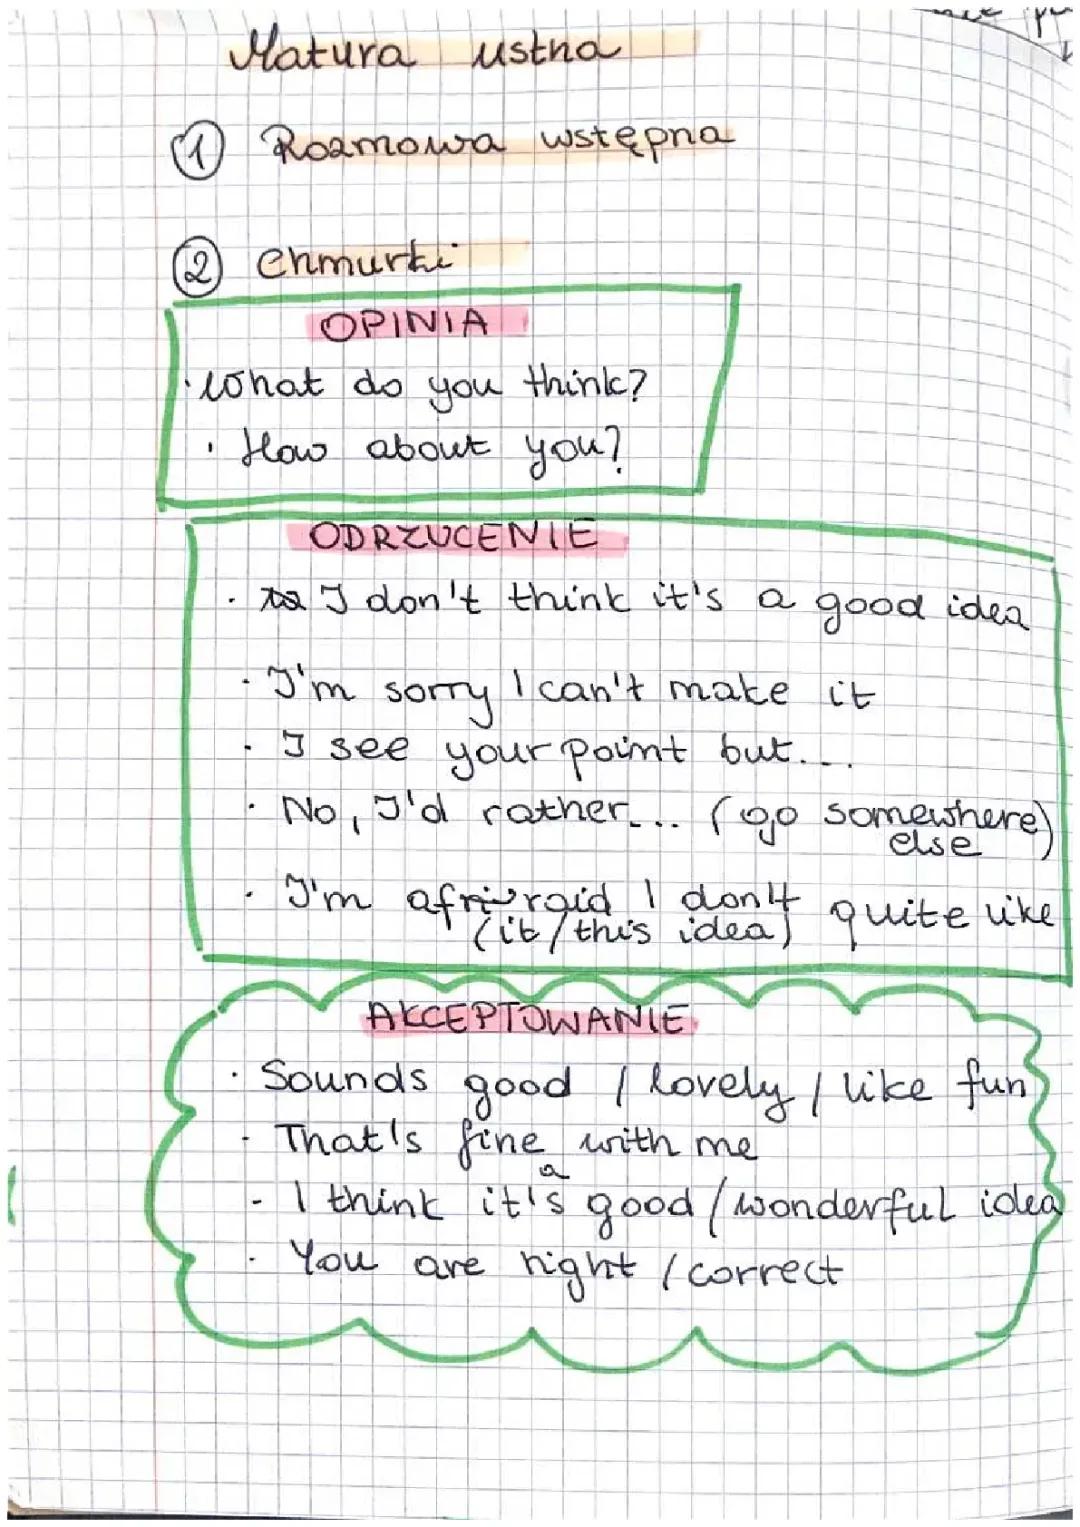 Matura ustna
① Rozmowa wstępna
② Chmurki
OPINIA
· What do you think?
· How about you?
ODRZUCENIE
· I don't think it's a good idea
· I'm sorry I can't make it
· I see your point but...
· No, I'd rather... (go somewhere)
else
· I'm afraid I don't quite like
(it/this idea)
AKCEPTOWANIE
· Sounds good / lovely / like fun
· That's fine with me
a
- I think it's good / wonderful idea
· You are right / correct